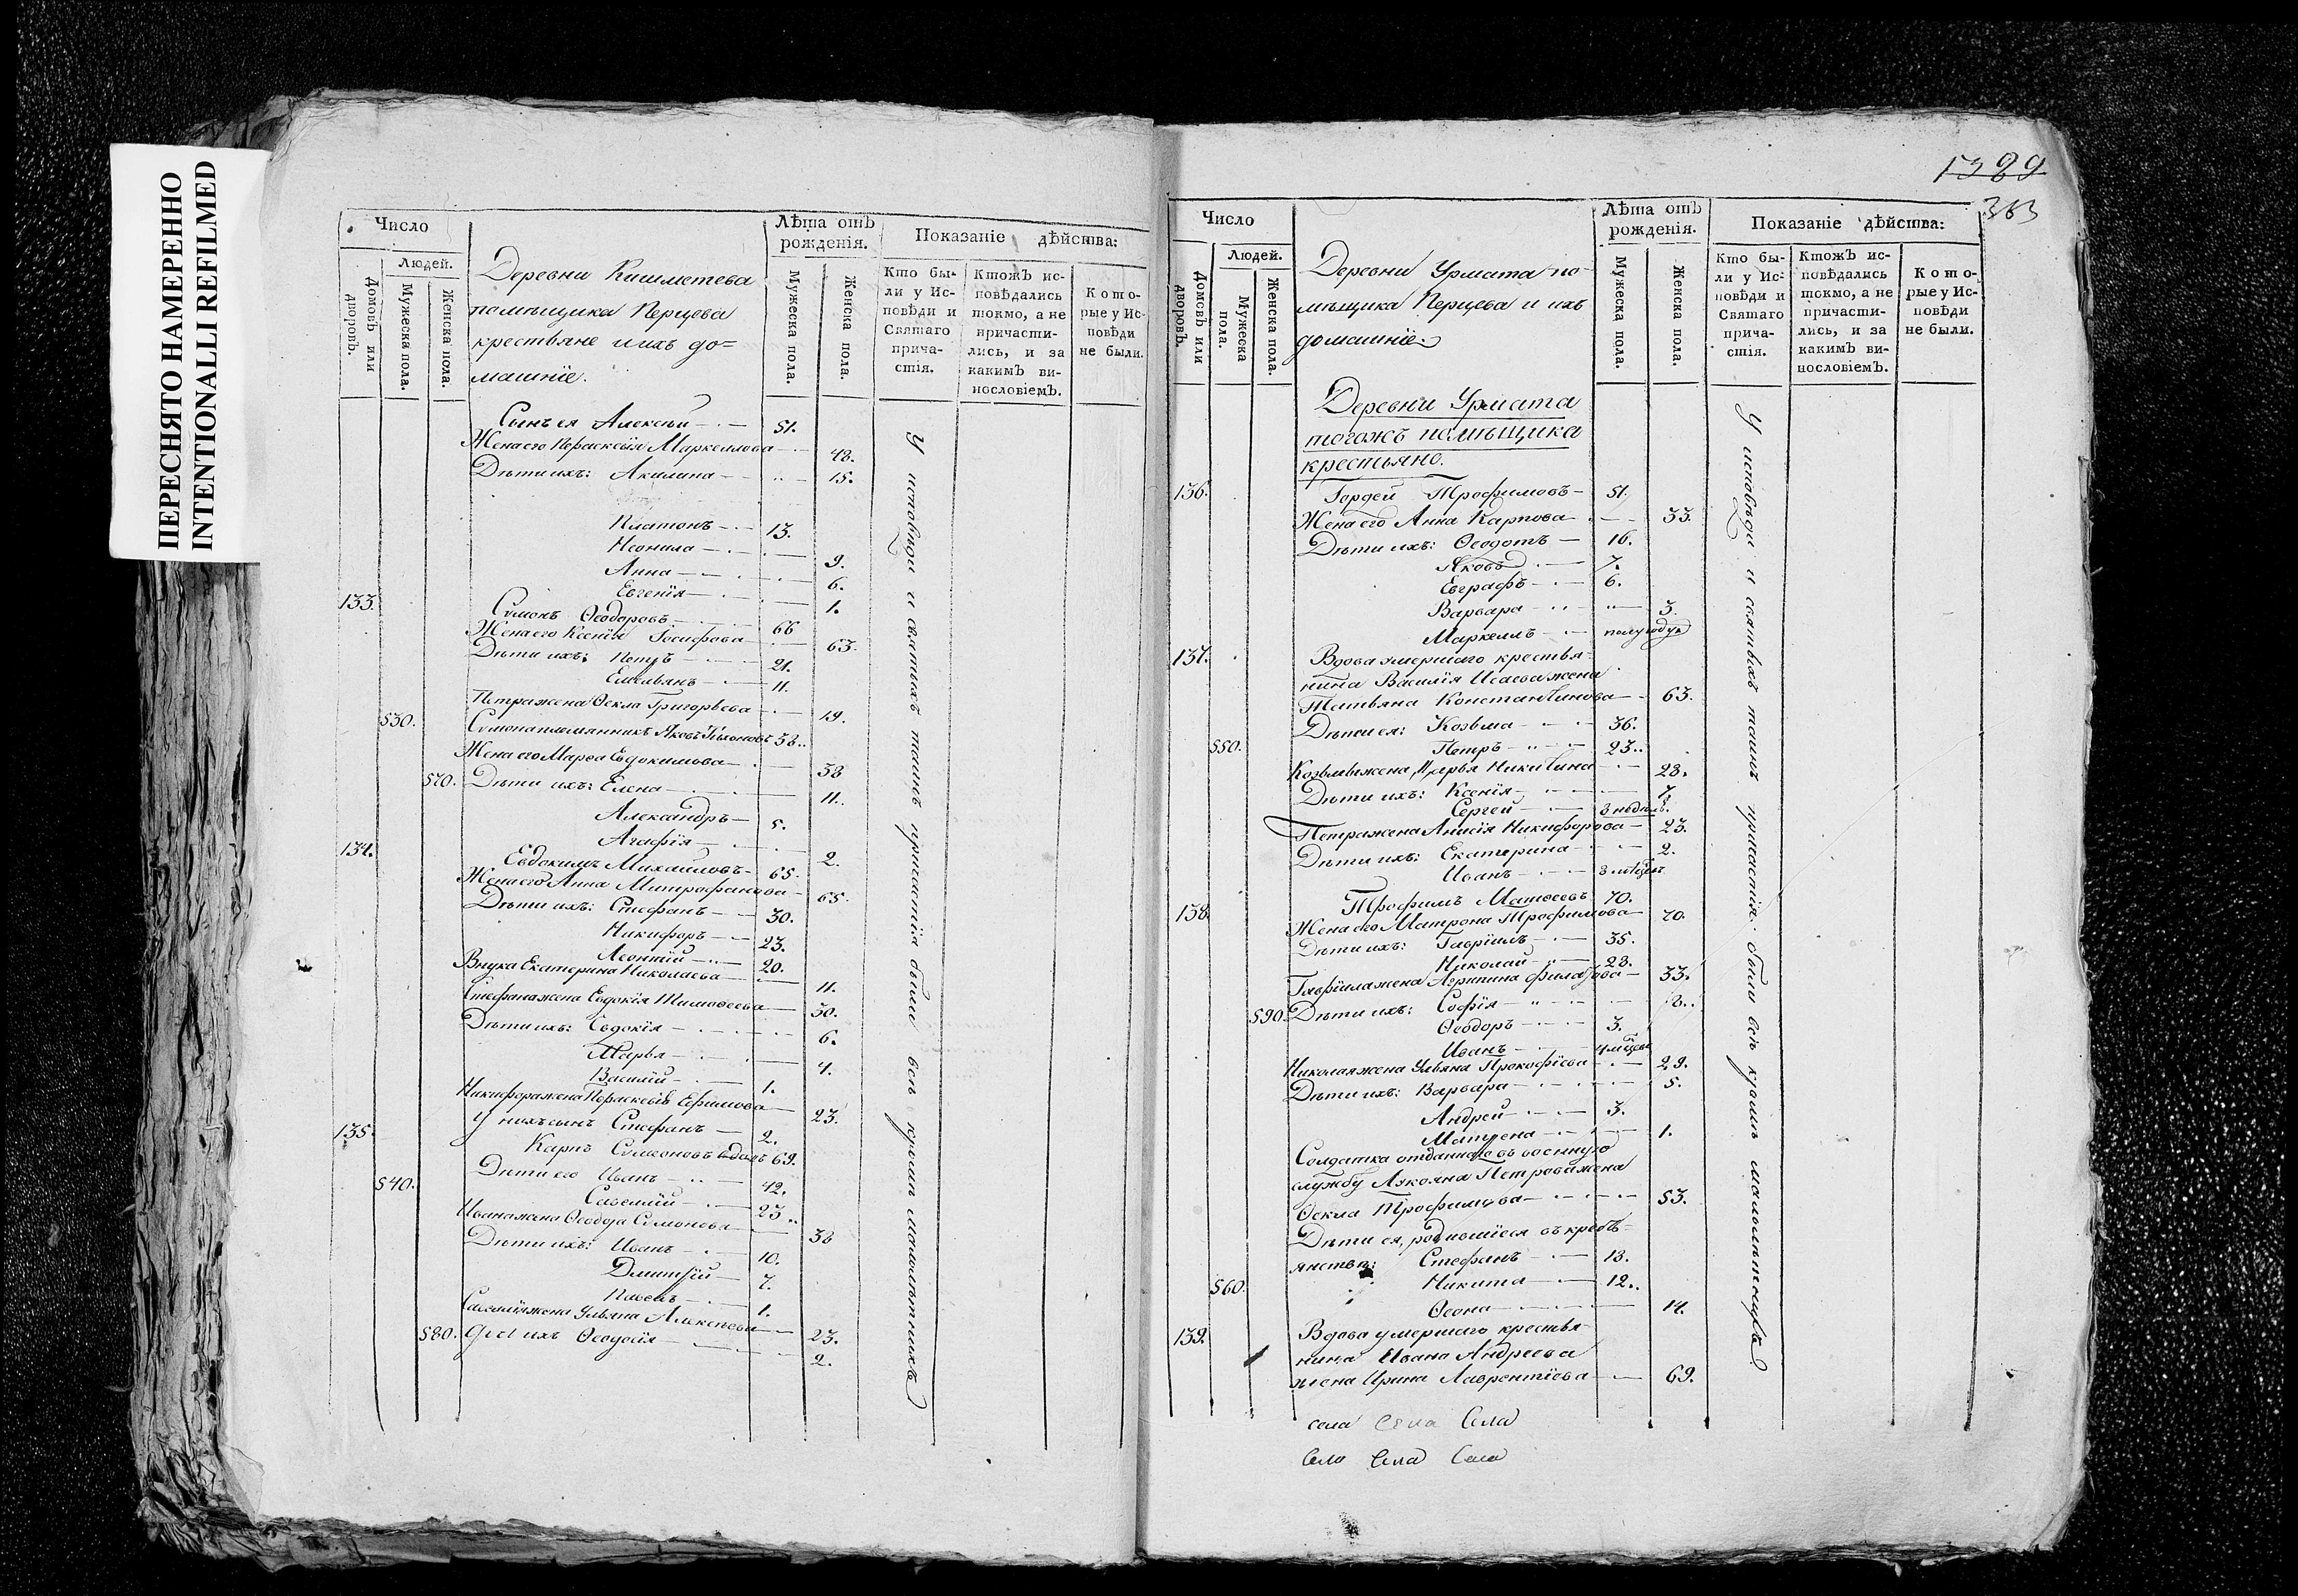 ПЕРЕСНЯТО НАМЕРЕННО
INTENTIONALLI REFILMED
Число
Лѣта отъ рожденія.
Показаніе дѣйства:
Домовъ или дворовъ.
Людей.
Мужеска пола.
Женска пола.
Деревни Кишметева
помѣщика Перцева
крестьяне и ихъ до=
машніе.
Мужеска пола.
Женска пола.
Кто бы-
ли у Ис-
повѣди и
Святаго
прича-
стія.
Ктожъ ис-
повѣдались
токмо, а не
причасти-
лись, и за
какимъ ви-
нословіемъ.
Кото-
рые у Ис-
повѣди
не были.
Сынъ ея Алексѣй 51.
Жена его Параскевія Маркеллова 48.
Дѣти ихъ: Акилина 15.
Платонъ 13.
Неонила 9.
Анна 6.
Евгенія 1.
133. Сѵмонъ Ѳеодоровъ 66
Жена его Ксенія Іосифова 63.
Дѣти ихъ: Петръ 21.
Емельянъ 11.
Петра жена Ѳекла Григорьева 19.
530. Сѵмона племянникъ Яковъ Тихоновъ 38..
Жена его Марѳа Евдокимова 38
570. Дѣти ихъ: Елена 11..
Александръ 5.
Агафія 2.
134. Евдокимъ Михайловъ 65.
Жена его Анна Митрофанова 65.
Дѣти ихъ: Стефанъ 30.
Никифоръ 23.
Леонтій 20.
Внука Екатерина Николаева 11.
Стефана жена Евдокія Тимоѳеева 30.
Дѣти ихъ: Евдокія 6.
Марья 4.
Василій 1.
Никифора жена Параскевія Ефимова 23.
У нихъ сынъ Стефанъ 2.
135. Карпъ Сѵмеоновъ вдовъ 69.
Дѣти его Иванъ 42.
540. Савелій 23..
Ивана жена Ѳеодора Сѵмонова 38
Дѣти ихъ: Иванъ 10.
Дмитрій 7.
Павелъ 1.
Савелія жена Ульяна Алексѣева 23.
580. Дѣти ихъ Ѳеодосія 2.
У исповѣди и святыхъ таинъ причастія были всѣ кромѣ малолѣтнихъ
1389
363
Число
Лѣта отъ рожденія.
Показаніе дѣйства:
Домовъ или дворовъ.
Людей.
Мужеска пола.
Женска пола.
Деревни Урмата по-
мѣщика Перцева и ихъ
домашніе.
Мужеска пола.
Женска пола.
Кто бы-
ли у Ис-
повѣди и
Святаго
прича-
стія.
Ктожъ ис-
повѣдались
токмо, а не
причасти-
лись, и за
какимъ ви-
нословіемъ.
Кото-
рые у Ис-
повѣди
не были.
Деревни Урмата
тогожъ помѣщика
крестьяне.
136. Гордей Трофимовъ 51.
Жена его Анна Карпова 33.
Дѣти ихъ: Ѳеодотъ 16.
Яковъ 7.
Евграфъ 6.
Варвара 3.
Маркеллъ полугоду
137. Вдова умершаго крестья-
нина Василія Исаева жена
Татьяна Константинова 63.
Дѣти ея: Козьма 36.
550. Петръ 23..
Козьмы жена Марья Никитина 28.
Дѣти ихъ: Ксенія 7.
Сергей 3 недѣль.
Петра жена Анисія Никифорова 23.
Дѣти ихъ: Екатерина 2.
Иванъ
138. Трофимъ Матѳеевъ 70.
Жена его Матрона Трофимова 70.
Дѣти ихъ: Гавріилъ 35.
Николай 28.
Гавріила жена Агрипина 33.
590. Дѣти ихъ: Софія
Ѳеодоръ 3.
Иванъ
Николая жена Ульяна Прокофіева 29.
Дѣти ихъ: Варвара 5.
Андрей 3.
Матрена 1.
Солдатка отданнаго въ военную
службу Петрова жена
Ѳекла Трофимова 53.
Дѣти ея, родившіеся въ кресть-
янствѣ: Стефанъ 18.
560. Никита 12..
Ѳеона 14.
139. Вдова умершаго крестья-
нина Ивана Андреева
жена Ирина Лаврентіева 69.
У исповѣди и святыхъ таинъ причастія были всѣ кромѣ малолѣтнихъ
села села Села
Села Села Села